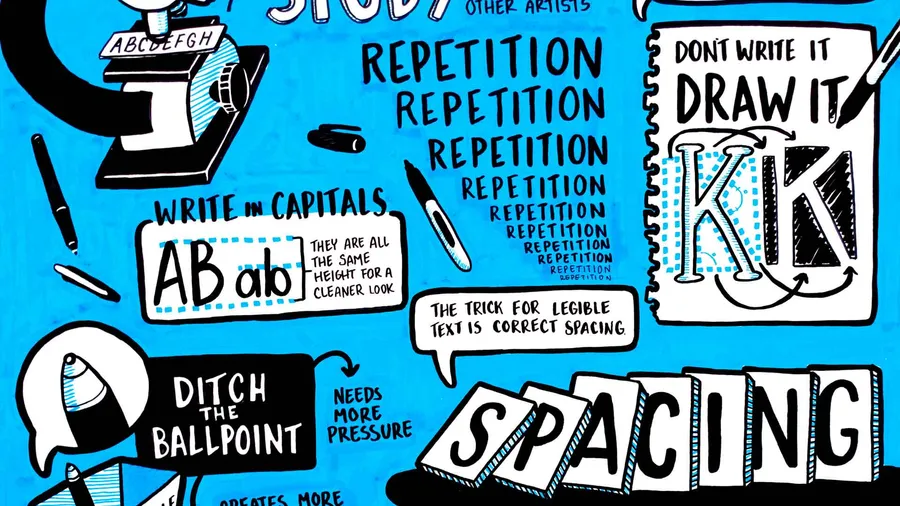 STUDY
OTHER ARTISTS
ABCDEFGH
REPETITION
REPETITION
REPETITION
REPETITION
REPETITION
REPETITION
REPETITION
REPETITION
REPETITION
REPETITION
DON'T WRITE IT
DRAW IT
K K
WRITE IN CAPITALS
AB ab
THEY ARE ALL
THE SAME
HEIGHT FOR A
CLEANER LOOK
THE TRICK FOR LEGIBLE
TEXT IS CORRECT SPACING
SPACING
DITCH
THE
BALLPOINT
NEEDS
MORE
PRESSURE
CREATES MORE